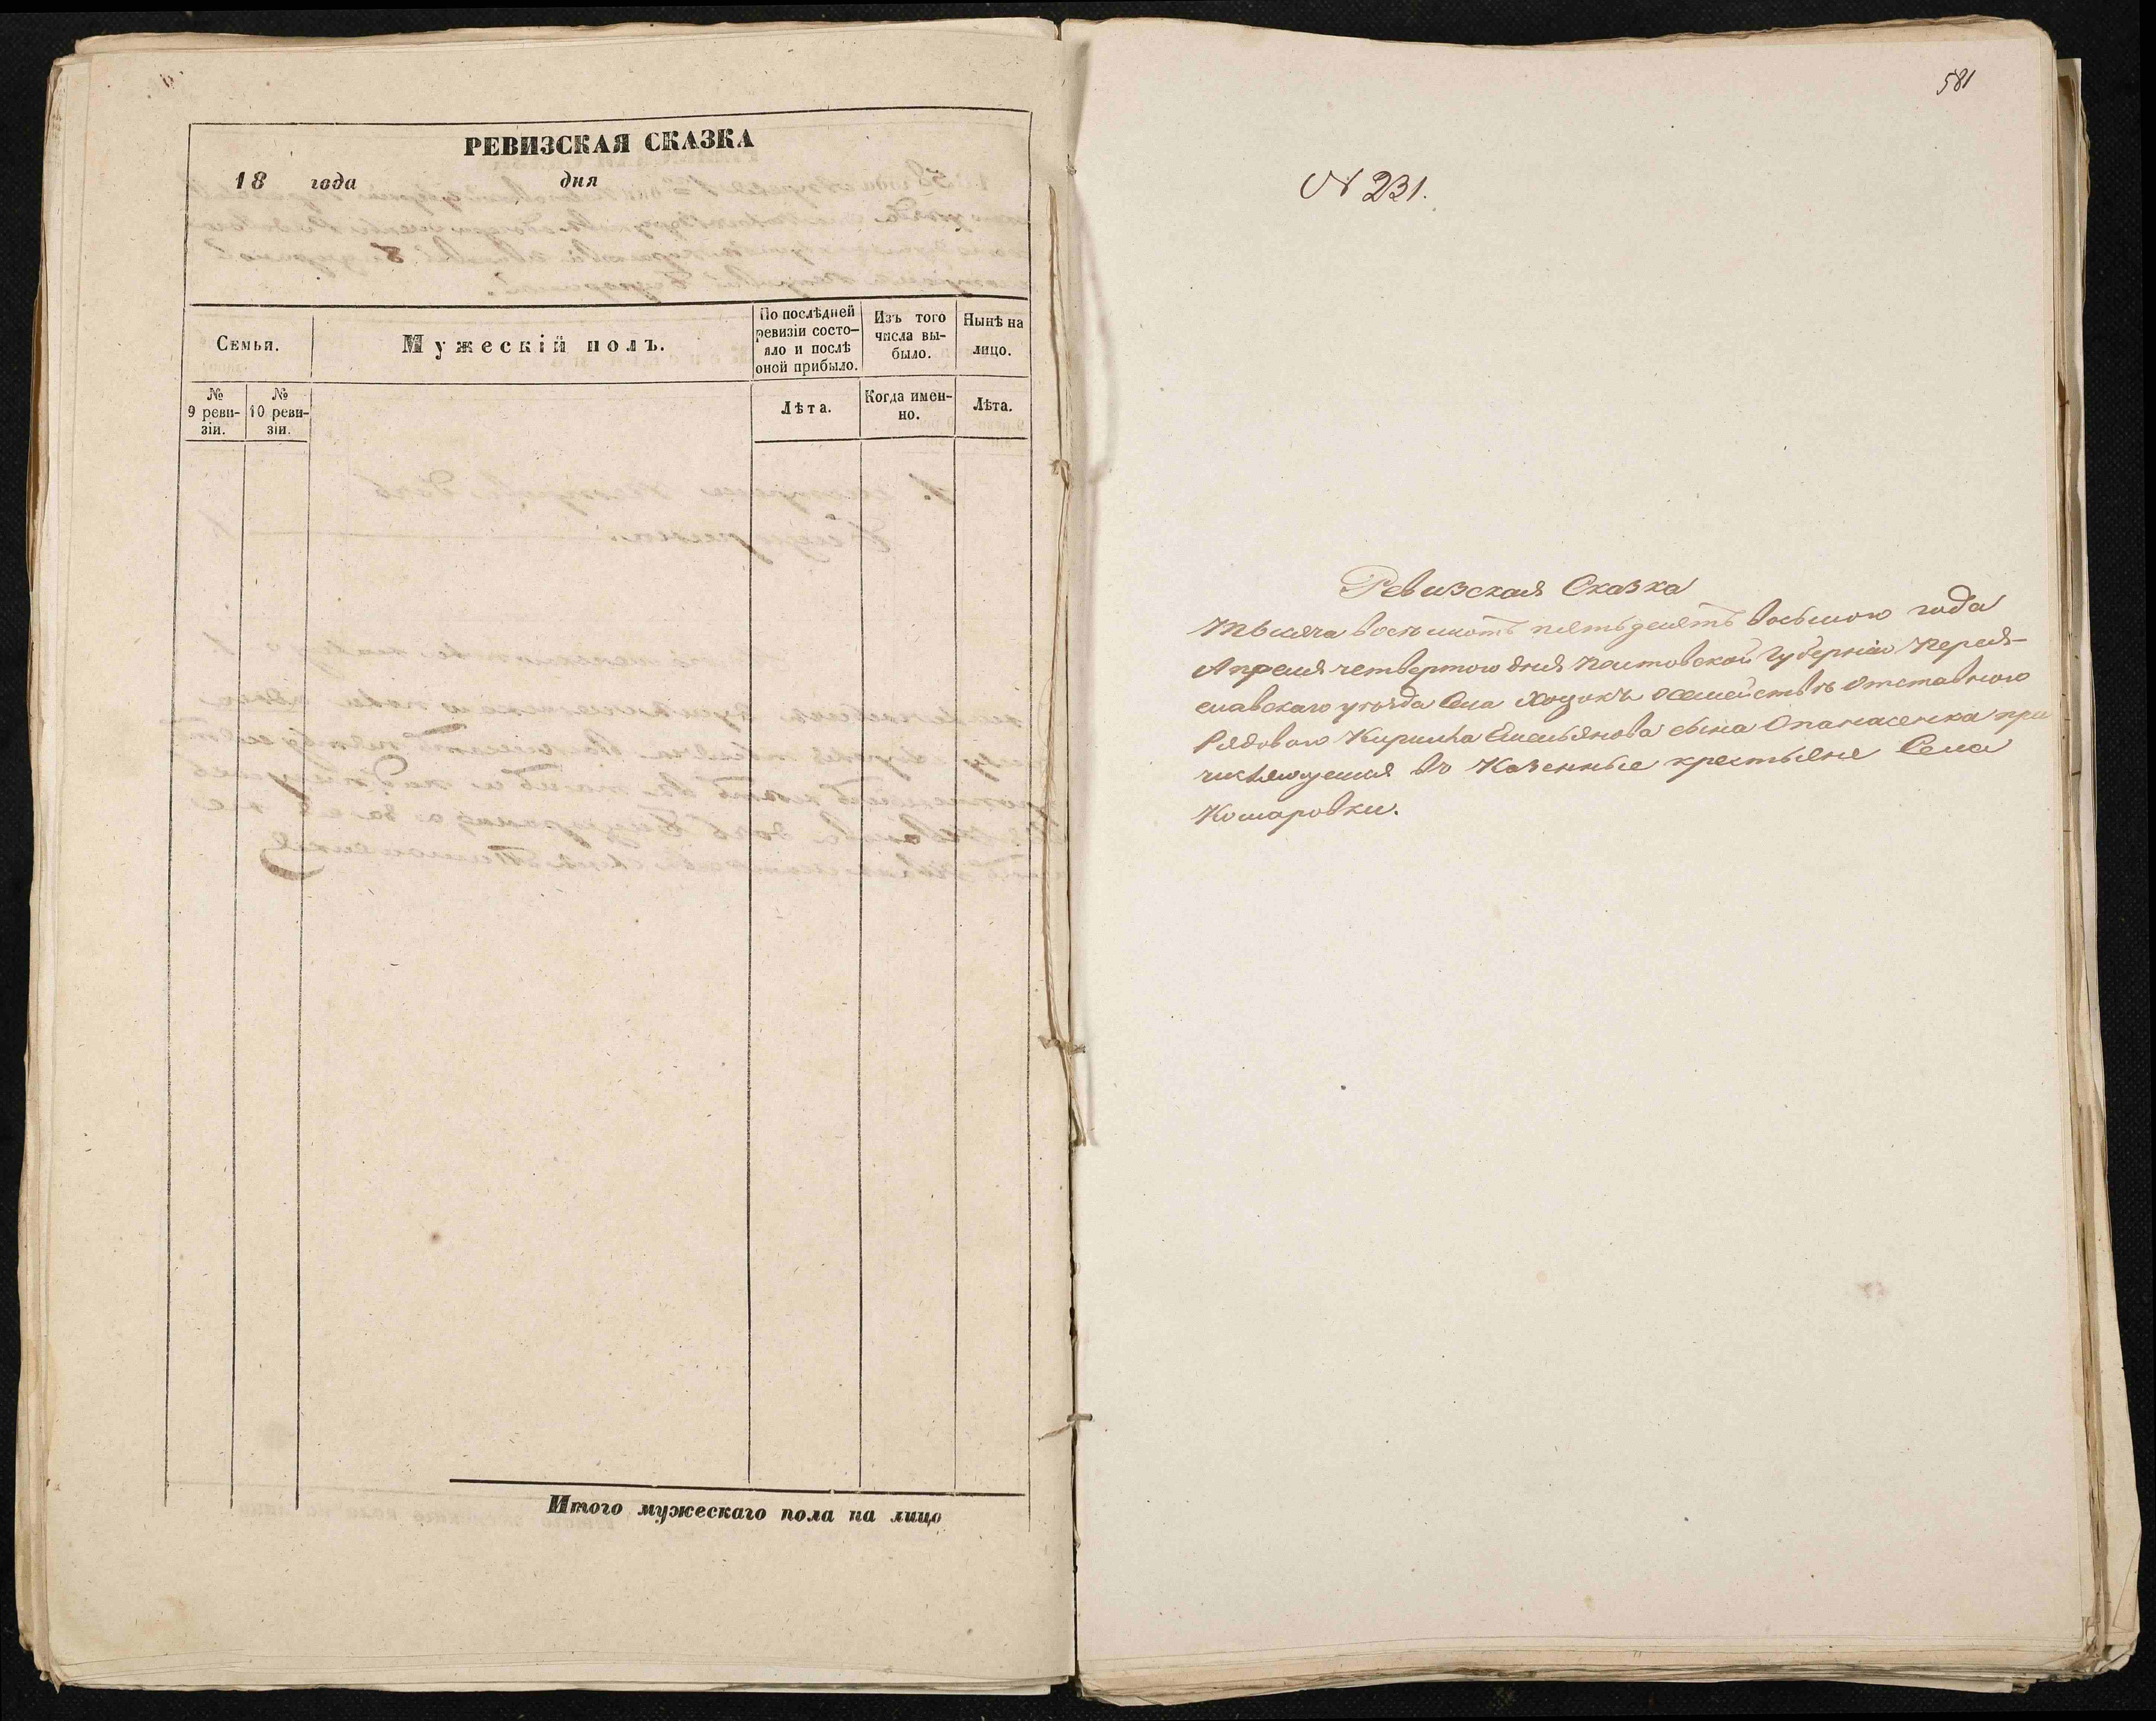 РЕВИЗСКАЯ СКАЗКА
18 года дня
Семьи.
Мужескій полъ.
По послѣдней ревизіи состо-
яло и послѣ оной прибыло.
Изъ того числа вы-
было.
Нынѣ на лицо.
№ 9 реви-
зіи.
№ 10 реви-
зіи.
Лѣта.
Когда имен-
но.
Лѣта.
Итого мужескаго пола на лицо
581
№ 231.
Ревизская Сказка
Тысяча восемьсотъ пятьдесятъ восьмого года
Апреля четвертого дня Полтовской Губерніи Перея-
славскаго уѣзда Села Хоцокъ о семействѣ отставного
Рядового Кирилла Емельянова сына Опанасенка при
числяющемся въ Казенные крестьяне Села
Комаровки.